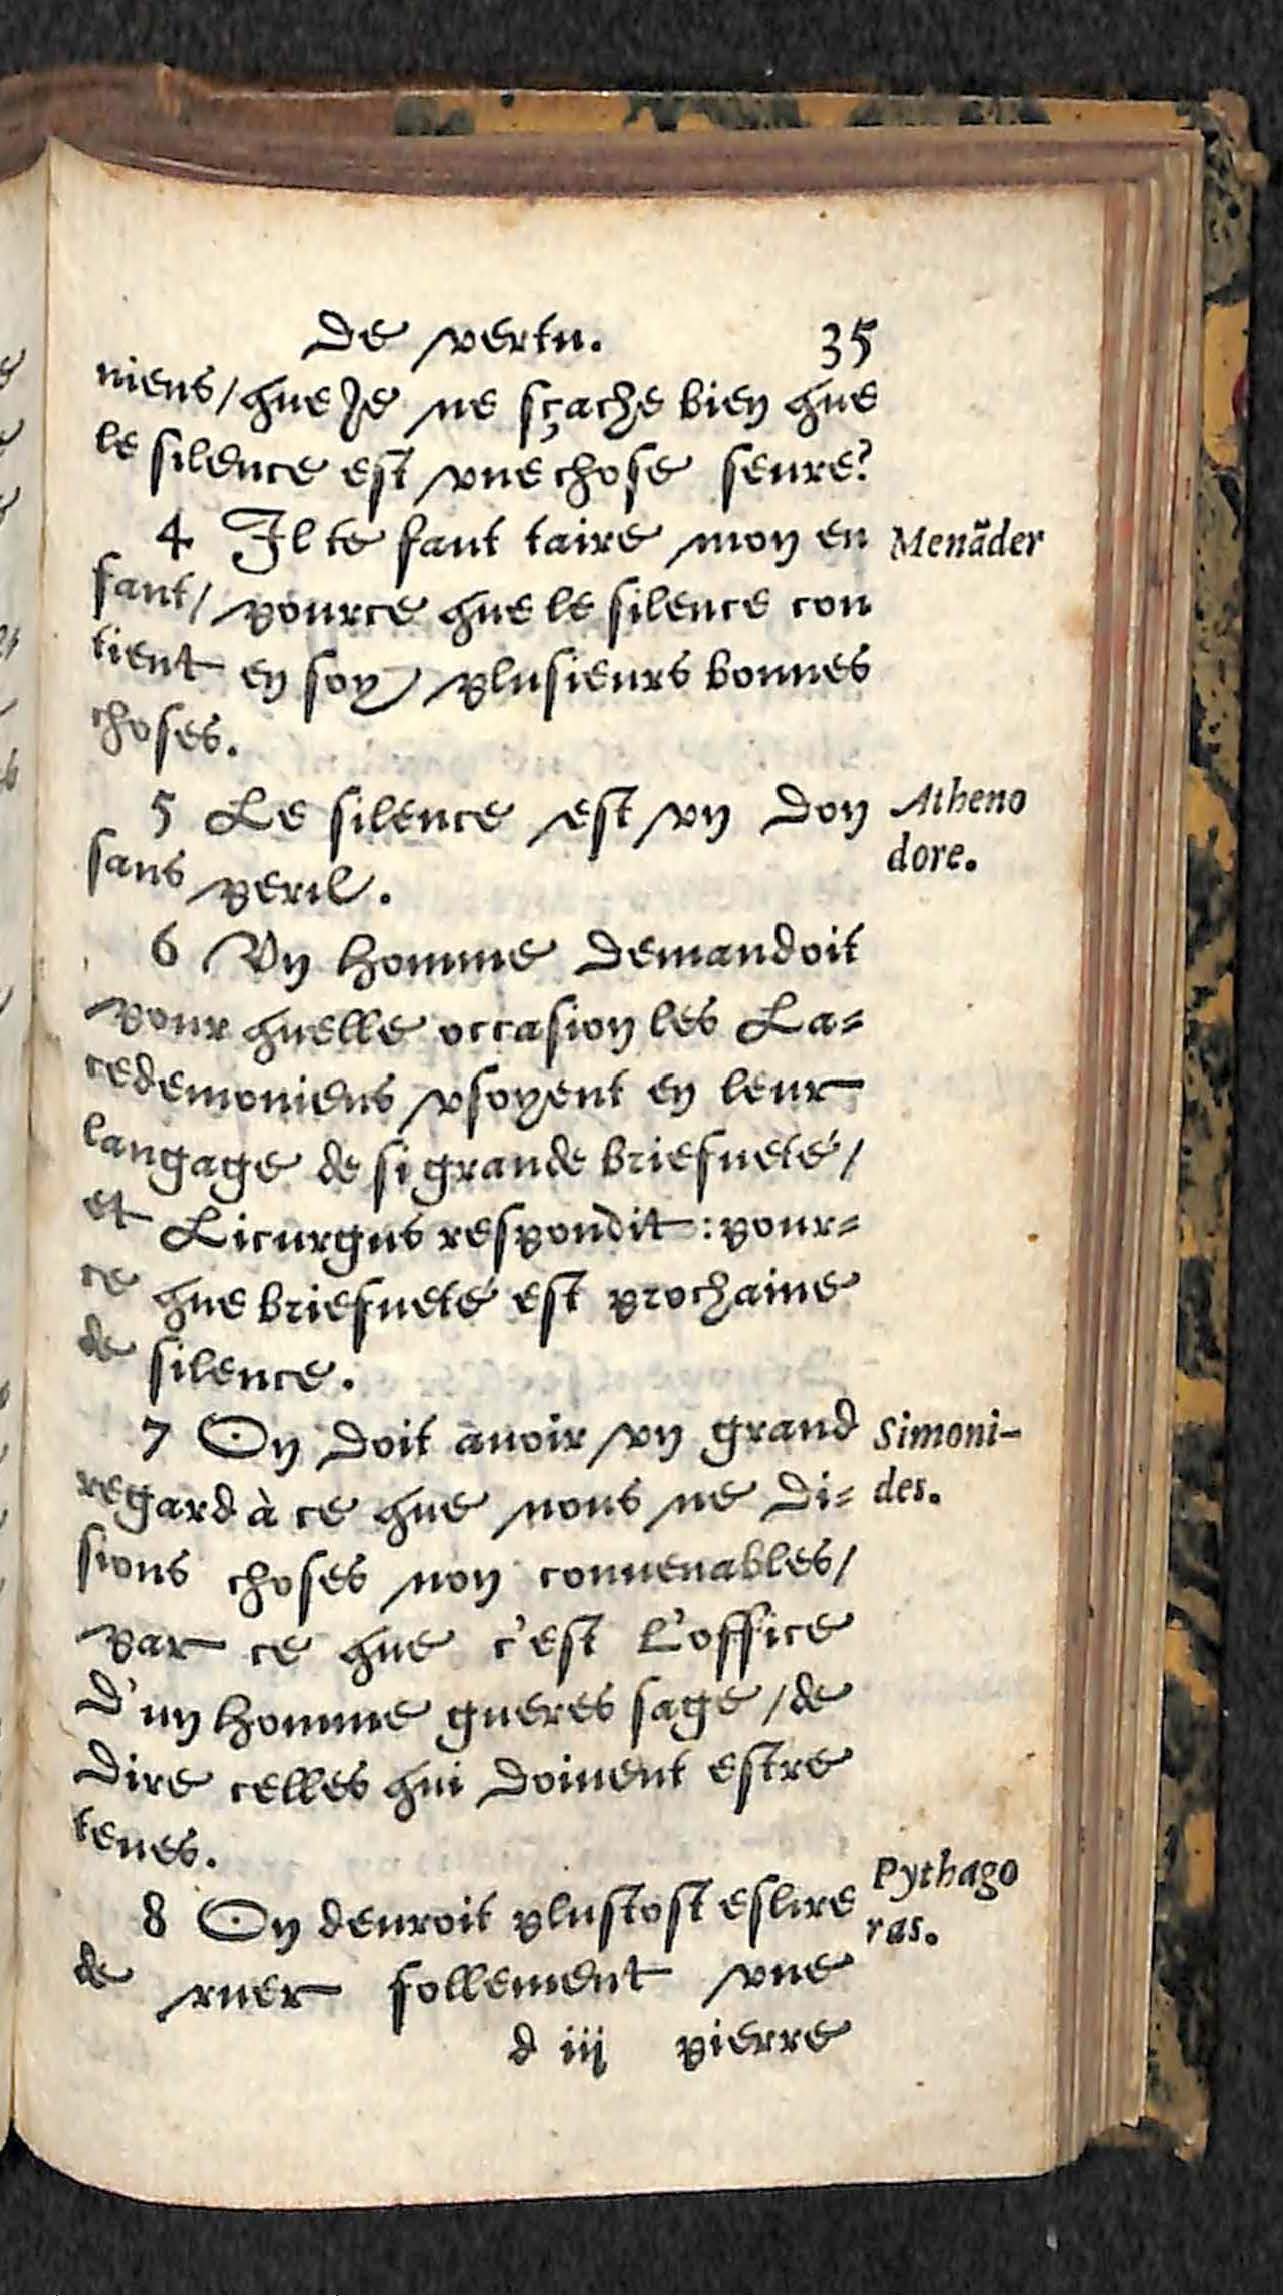 De vertu. 35
niens/que Je ne sçache bien que
le silence est vne chose seure?
4 Il te faut taire mon en
Menãder
fant/ pource que le silence con
tient en soy plusieurs bonnes
choses.
5 Le silence est vn don
Atheno
sans peril.
dore.
6 Vn homme demandoit
pour quelle occasion les La=
cedemoniens vsoyent en leur
langage de si grande briefueté/
et Licurgus respondit: pour=
ce que briefueté est prochaine
de silence.
7 On doit auoir vn grand
Simoni-
regard à ce que nous ne di=
des.
sions choses non conuenables/
par ce que c'est l'office
d'un homme gueres sage/de
dire celles qui doiuent estre
teues.
8 On deuroit plustost eslire
Pythago
ras.
de ruer follement vne
d iij pierre